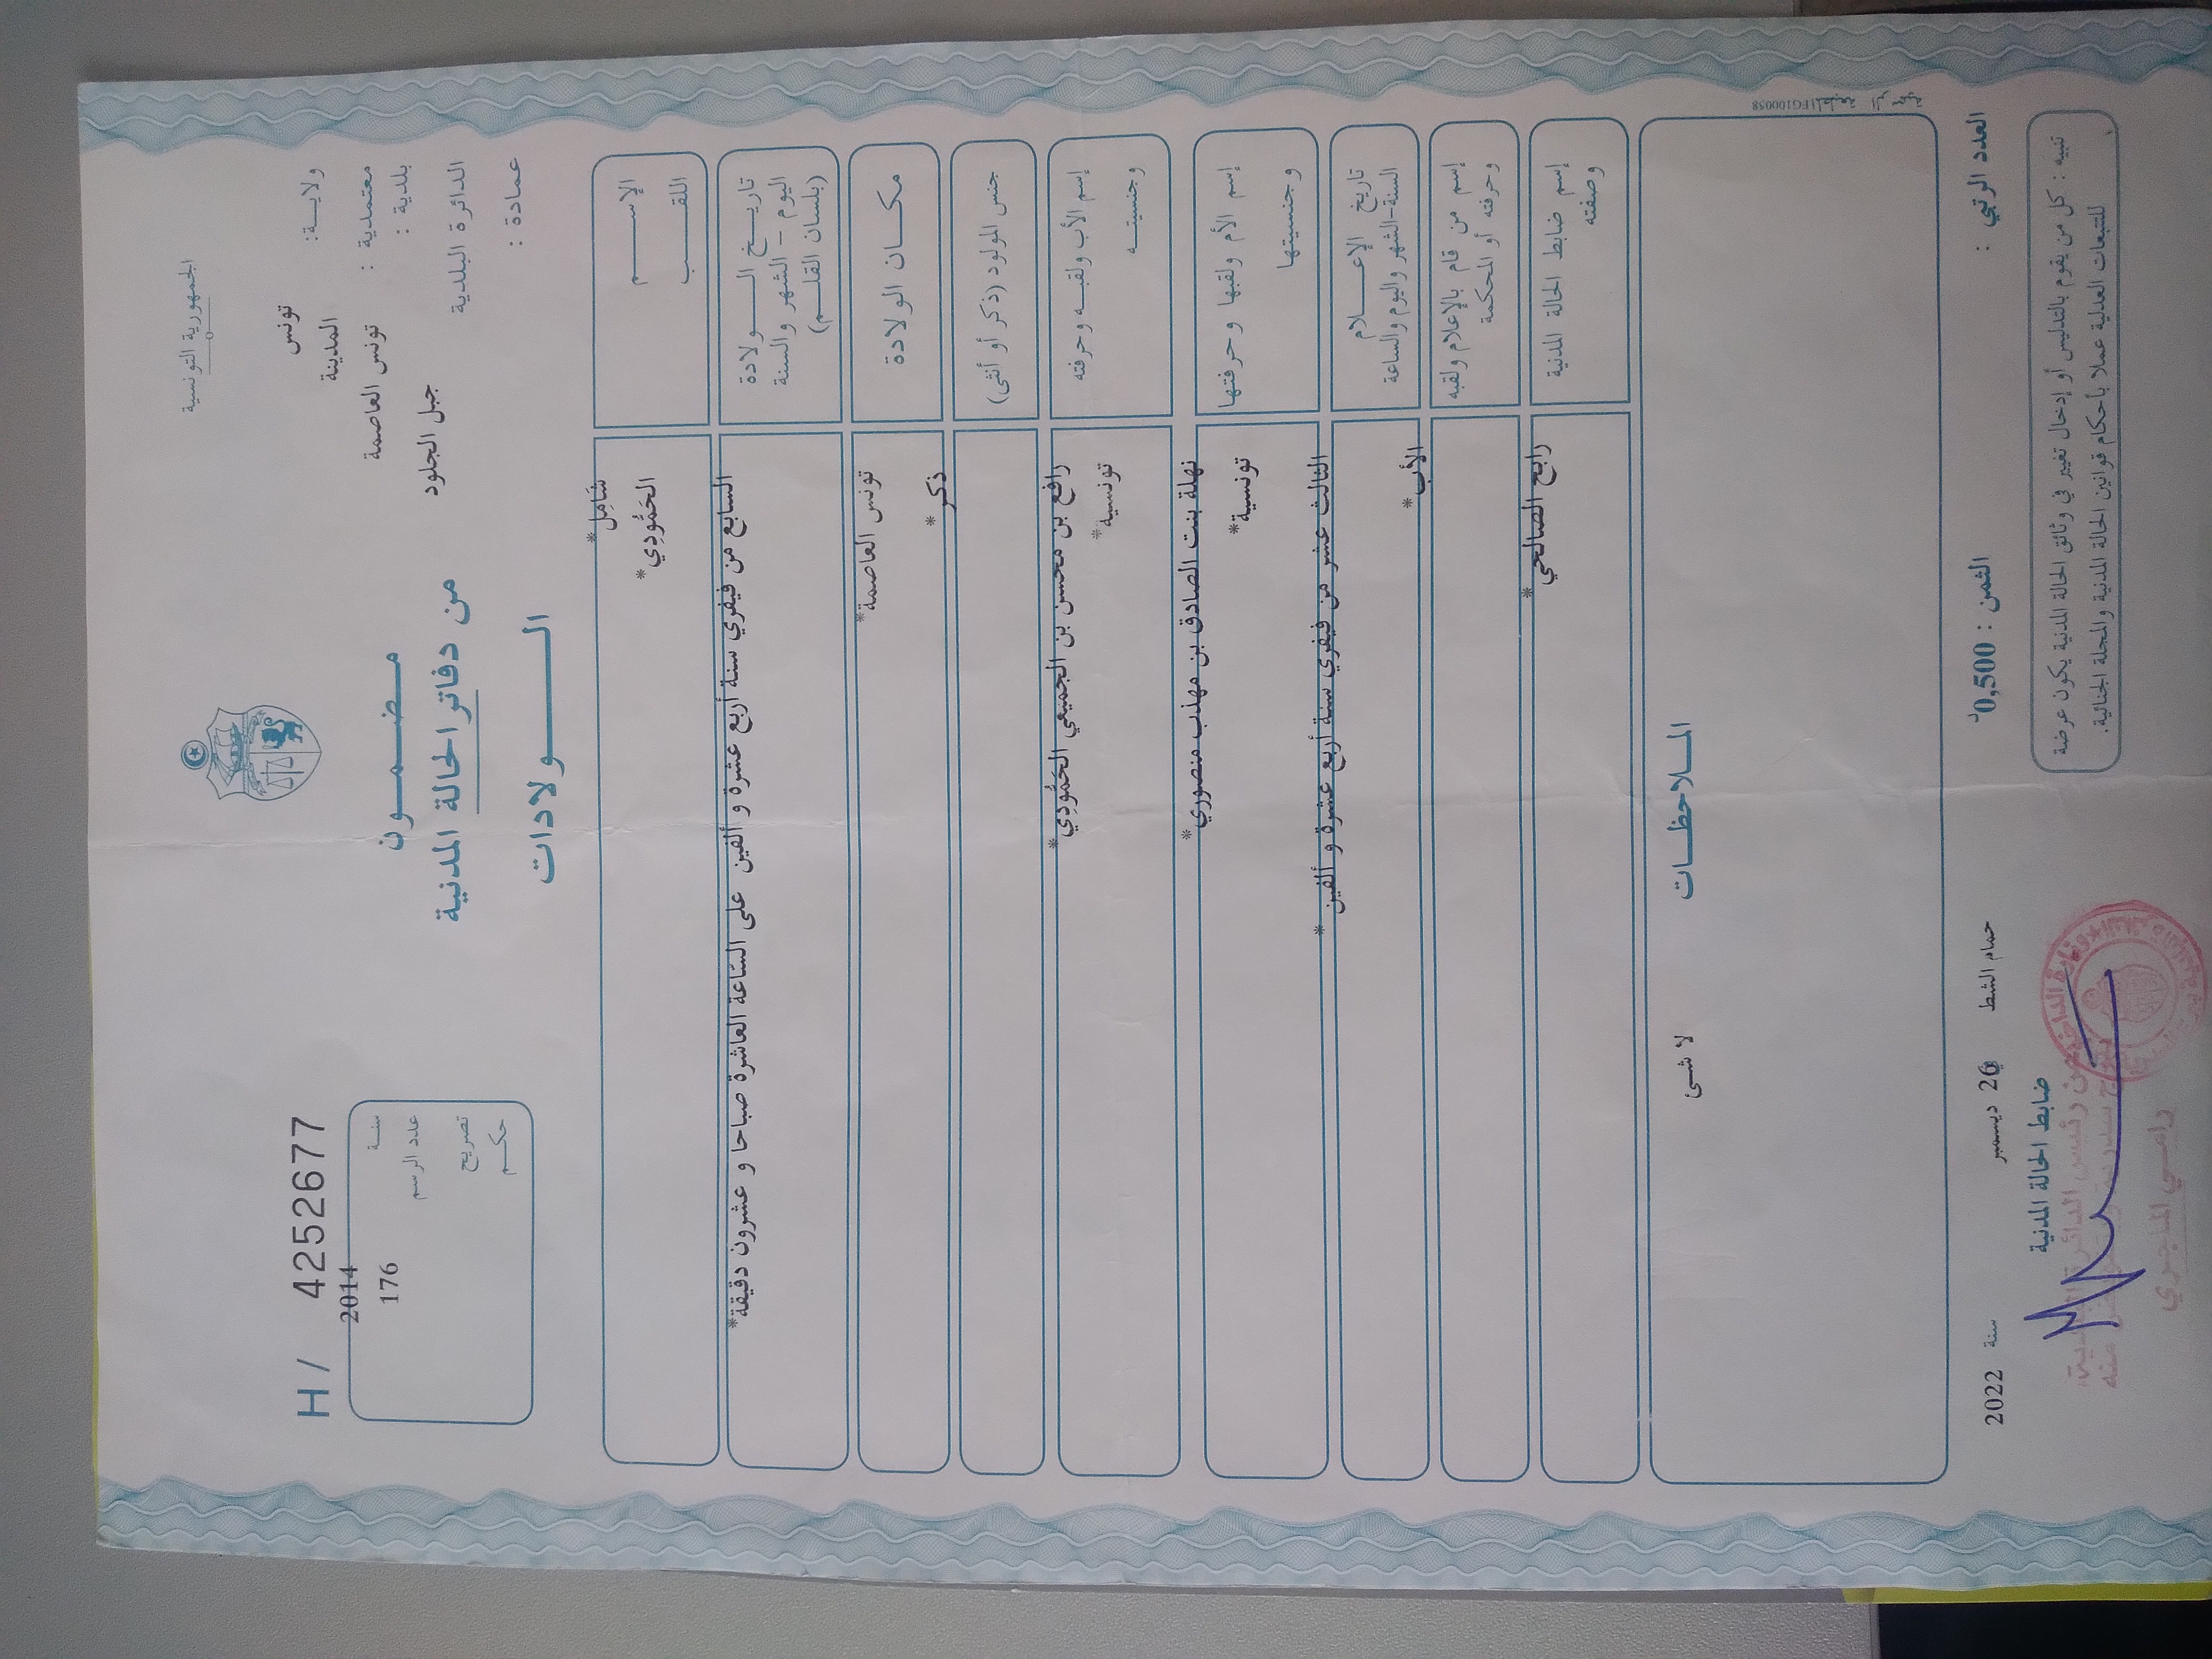 الجمهورية التونسية
ولايـــة: تونس
المدينة
معتمدية :
بلدية : تونس العاصمة
الدائرة البلدية جبل الجلود
عمادة :
مـــضــمـــــون
من دفاتر الحالة المدنية
الـــــــولادات
H / 4252677
2014
سنــة
176
عدد الرسم
تصريح
حكــم
الإســـــــم
شَامِل*
اللقـــــــب
الحَمُّودِي*
تاريـــخ الـــــولادة
اليوم - الشهر والسنة
(بلسان القلـــم)
السابع من فيفري سنة أربع عشرة و ألفين على السّاعة العاشرة صباحا و عشرون دقيقة*
مكـــان الولادة
تونس العاصمة*
جنس المولود (ذكر أو أنثى)
ذكر*
إسم الأب ولقبــه وحرفته
وجنسيتــه
رافع بن محسن بن الجميعي الحَمُّودِي*
تونسية*
إسم الأم ولقبها وحرفتها
وجنسيتها
نهلة بنت الصادق بن مهذب منصوري*
تونسية*
تاريخ الإعــــلام
السنة-الشهر واليوم والساعة
الثالث عشر من فيفري سنة أربع عشرة و ألفين*
إسم من قام بالإعلام ولقبه
وحرفته أو المحكمة
الأب*
إسم ضابط الحالة المدنية
وصفته
رابح الصالحي*
المــلاحظــات
لا شىء
المطبعة الرسمية FG100058
العدد الرتبي :
الثمن : 0,500د
حمام الشط 26 ديسمبر سنة 2022
ضابط الحالة المدنية
تنبيه : كل من يقوم بالتدليس أو إدخال تغيير في وثائق الحالة المدنية يكون عرضة
للتتبعات العدلية عملا بأحكام قوانين الحالة المدنية والمجلة الجنائية.
رامـــي الماجري